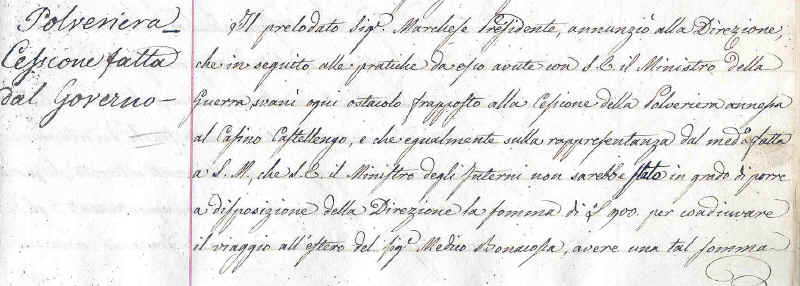 Polveriera_
Cessione fatta
dal Governo_
Il prelodato Sig.r Marchese Presidente, annunziò alla Direzione,
che in seguito alle pratiche da esso avute con S. E. il Ministro della
Guerra, svanì ogni ostacolo frapposto alla Cessione della Polveriera annessa
al Casino Castellengo, e che egualmente sulla rappresentanza dal med.o fatta
a S. M., che S. E. il Ministro degli Interni non sarebbe stato in grado di porre
a disposizione della Direzione la somma di 900. per coadiuvare
il viaggio all'estero del Sig.r Medico Bonacossa, avere una tal somma